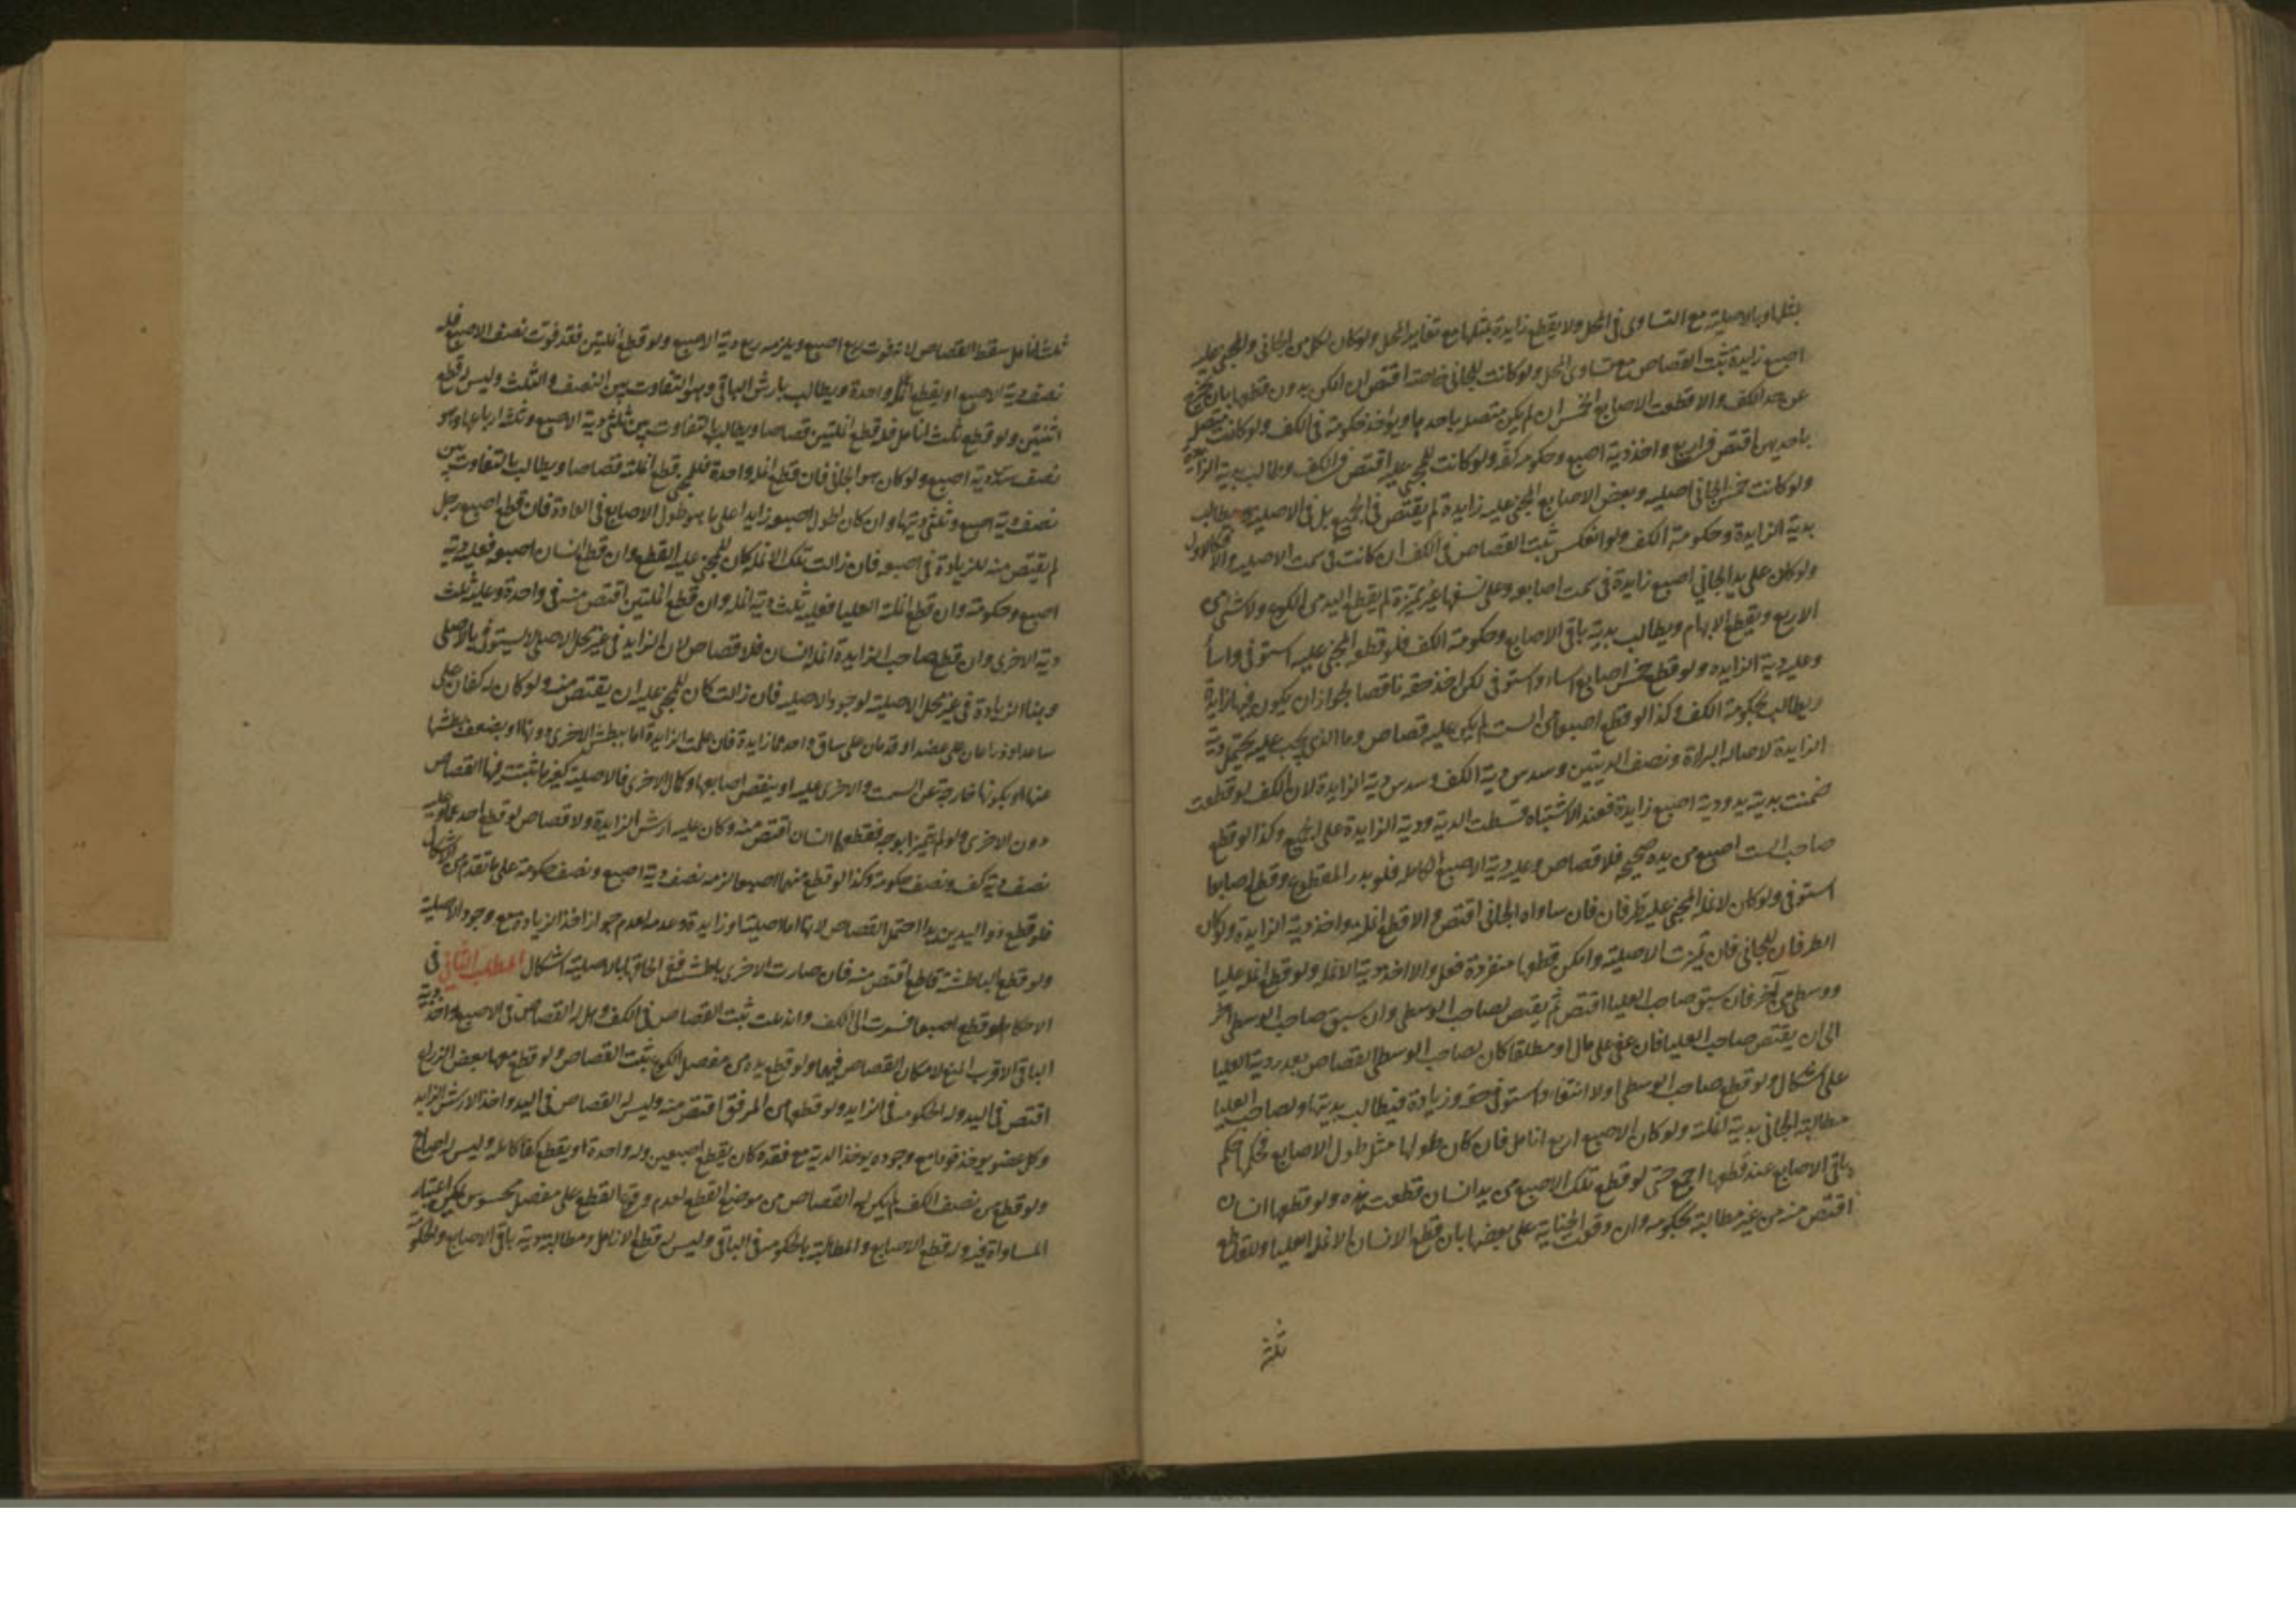 بمثلها وبالاصلية مع التساوى فى المحل ولا يقطع زايدة بمثلها مع تغاير المحل ولو كان لكل من الجانى والمجنى عليه
اصبع زايدة ثبت القصاص مع تساوى المحل ولو كانت للجانى خاصة اقتص ان امكن بدون قطعها بان يخرج
عن حد الكف والا قطعت الاصابع الخمس ان لم يكن متصل باحديها ويؤخذ حكومة فى الكف ولو كانت متصلة
باحديهن اقتص فى اربع واخذ دية اصبع وحكومة كف ولو كانت للمجنى عليه اقتص فى الكف وطالب بدية الزايدة
ولو كانت خمس الجانى اصلية وبعض الاصابع المجنى عليه زايدة لم يقتص فى الجميع بل فى الاصلية ويطالب
بدية الزايدة وحكومة الكف ولو انعكس ثبت القصاص فى الكف ان كانت فى سمت الاصلية والا فكالاول
ولو كان على يد الجانى اصبع زايدة فى سمت اصابعه وعلى نسقها غير متميزة لم يقطع اليد من الكوع ولا شئ من
الاربع ويقطع الابهام ويطالب بدية باقى الاصابع وحكومة الكف فلو قطع المجنى عليه استوفى واساء
وعليه دية الزايدة ولو قطع خمس اصابع اساء واستوفى لكن اخذ حقه ناقصا لجواز ان يكون فيها زايدة
ويطالب بحكومة الكف وكذا لو قطع اصبعا من الست لم يكن عليه قصاص وما الذى يجب عليه يحتمل دية
الزايدة لاصالة البراءة ونصف الديتين وسدس دية الكف وسدس دية الزايدة لان الكف لو قطعت
ضمنت بدية يد ودية اصبع زايدة فعند الاشتباه قسطت الدية ودية الزايدة على الجميع وكذا لو قطع
صاحب الست اصبع من يده صحيحة فلا قصاص وعليه دية الاصبع الكاملة فلو بدر المقطوع وقطع اصبعا
استوفى ولو كان لانملة المجنى عليه طرفان فان ساواه الجانى اقتص والا قطع انملته واخذ دية الزايدة ولو كان
الطرفان للجانى فان تميزت الاصلية وامكن قطعها منفردة فعل والا اخذ دية الانملة ولو قطع انملة عليا
ووسطى من آخر فان سبق صاحب العليا اقتص ثم يقتص لصاحب الوسطى وان سبق صاحب الوسطى اخر
الى ان يقتص صاحب العليا فان عفى على مال او مطلقا كان لصاحب الوسطى القصاص بعد رد دية العليا
على اشكال ولو قطع صاحب الوسطى اولا اساء واستوفى حقه وزيادة فيطالب بديتها ولصاحب العليا
مطالبة الجانى بدية انملته ولو كان الاصبع اربع انامل فان كان طولها مثل طول الاصابع فحكمها حكم
باقى الاصابع عند قطعها اجمع حتى لو قطع تلك الاصبع من يد انسان قطعت هذه ولو قطعها انسان
اقتص منه من غير مطالبة بحكومة وان وقعت الجناية على بعضها بان قطع الانسان الانملة العليا وللقاطع
ثلث
ثلث انامل سقط القصاص لانه فوت ربع اصبع ويلزمه ربع دية الاصبع ولو قطع انملتين فقد فوت نصف الاصبع فله
نصف دية الاصبع او يقطع انملة واحدة ويطالب بارش الباقى وهو التفاوت بين النصف والثلث وليس له قطع
اثنتين ولو قطع ثلث انامل فله قطع انملتين قصاصا ويطالب بالتفاوت بين ثلثى دية الاصبع وثلثة ارباعها وهو
نصف سدس دية اصبع ولو كان هو الجانى فان قطع انملة واحدة فللمجنى قطع انملته قصاصا ويطالب بالتفاوت بين
نصف دية اصبع وثلثى ديتها وان كان لطول اصبعه زايدا على ما هو طول الاصابع فى العادة فان قطع اصبع رجل
لم يقتص منه للزيادة فى اصبعه فان زالت تلك الانملة كان للمجنى عليه القطع وان قطع انسان اصبعه فعليه دية
اصبع وحكومة وان قطع انملة العليا فعليه ثلث دية انملة وان قطع انملتين اقتص منه فى واحدة وعليه ثلث
دية الاخرى وان قطع صاحب الزايدة انملة انسان فلا قصاص لان الزايد فى غير محل الاصلى لا يستوفى بالاصلى
وهنا الزيادة فى غير محل الاصلية لوجود الاصلية فان زالت كان للمجنى عليه ان يقتص منه ولو كان له كفان على
ساعد او ذراعان على عضد او قدمان على ساق واحدهما زايدة فان علمت الزايدة اما ببطش الاخرى دونها او بضعف بطشها
عنها او بكونها خارجة عن السمت والاخرى عليه او بنقص اصابعها وكمال الاخرى فالاصلية كغيرها تثبت فيها القصاص
دون الاخرى ولو لم يتميزا بوجه فقطعها انسان اقتص منه وكان عليه ارش الزايدة ولا قصاص لو قطع احدهما وعليه
نصف دية كف ونصف حكومة وكذا لو قطع منها اصبعا لزمه نصف دية اصبع ونصف حكومة على ما تقدم من الاشكال
فلو قطع ذو اليدين يدا احتمل القصاص لانها اما اصلية او زايدة وعدمه لعدم جواز اخذ الزيادة مع وجود الاصلية
ولو قطع الباطشة قاطع اقتص منه فان صارت الاخرى باطشة ففى الحاقها بالاصلية اشكال المطلب الثانى فى
الاحكام لو قطع اصبعا فسرت الى الكف واندملت ثبت القصاص فى الكف وهل له القصاص فى الاصبع واخذ دية
الباقى الاقرب المنع لامكان القصاص فيهما ولو قطع يده من مفصل الكوع ثبت القصاص ولو قطع معها بعض الذراع
اقتص فى اليد وله الحكومة فى الزايد ولو قطعها من المرفق اقتص منه وليس له القصاص فى اليد واخذ الارش الزايد
وكل عضو يؤخذ قودا مع وجوده يؤخذ الدية مع فقده كان يقطع اصبعين وله واحدة او يقطع كفا كاملة وليس له اصابع
ولو قطع من نصف الكف لم يكن له القصاص من موضع القطع لعدم وقوع القطع على مفصل محسوس يمكن اعتبار
المساواة فيه وله قطع الاصابع والمطالبة بالحكومة فى الباقى وليس له قطع الانامل ومطالبة دية باقى الاصابع والحكومة